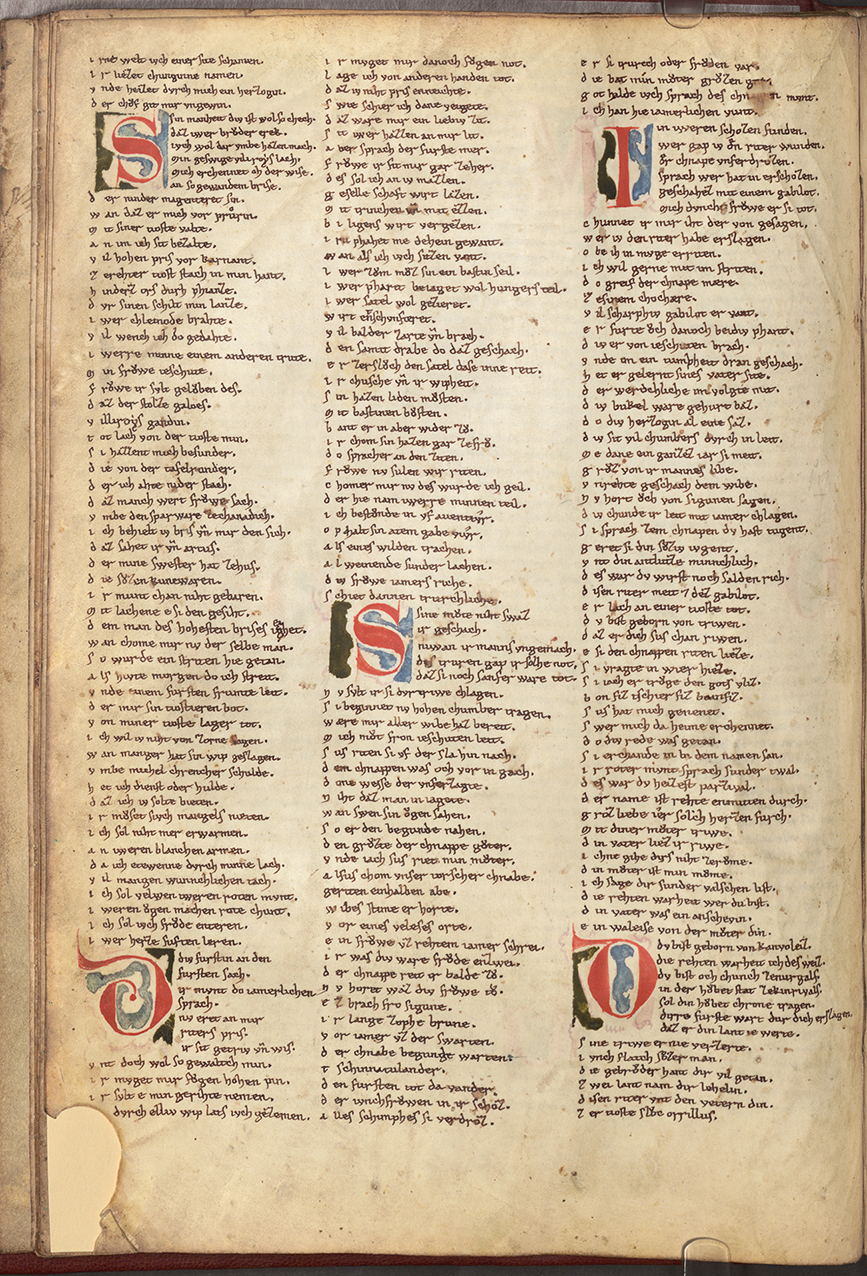 i rne welt ivch einer site schamen.
i r liezet chunginne namen.
v nde heizet dvrch mich ein herzogin.
d er chof git mir vngewin.
Sin manheit div ist wol so chech.
daz iwer brvder erek.
iwch wol dar vmbe hazen mach.
min geswige vil roys lach.
mich erchennet och der wise.
an so gewandem brise.
d er ninder magenteret sin.
w an daz er mich vor prvrin.
m it siner tioste valte.
a n im ich sit bezalte.
v il hohen pris vor karnant.
z erehter tiost stach in min hant.
h inderz ors durh phianze.
d vr sinen schilt min lanze.
i wer chleinode brahte.
v il wench ich do gedahte.
i werre minne einem anderen trute.
m in frowe ieschute.
f rowe ir svlt geloben des.
d az der stolze galoes.
v illiroys gandin.
t ot lach von der tioste min.
s i hallent mich besunder.
d ie von der tafelrunder.
d er ich ahte nider stach.
d az manch wert frowe sach.
v mbe den sparware zechanadich.
i ch behielt iv bris vn mir den sich.
d az sahet ir vn artus.
d er mine swester hat zehus.
d ie sozen kunewaren.
i r munt chan niht gebaren.
m it lachene e si den gesiht.
d em man des hohesten brises giht.
w an chome mir nv der selbe man.
s o wurde ein striten hie getan.
a ls hvte morgen do ich streit.
v nde einem fursten frumte leit.
d er mir sin tiostieren bot.
v on miner tioste lager tot.
i ch wil iv niht von zorne sagen.
w an manger hat sin wip geslagen.
v mbe michel chrencher schulde.
h et ich dienst oder hulde.
d az ich iv solte bieten.
i r mozet iwch mangels nieten.
i ch sol niht mer erwarmen.
a n iweren blanchen armen.
d a ich etewenne dvrch minne lach.
v il mangen wunnchlichen tach.
i ch sol velwen iweren roten mvnt.
i weren ogen machen rote chunt.
i ch sol iwch frode enteren.
i wer herze suften leren.
Div furstin an den
fursten sach.
ir mvnt do iamerlichen
sprach.
nv eret an mir
riters pris.
ir sit getriw vn wis.
v nt doch wol so gewaltch min.
i r mvget mir fogen hohen pin.
i r svlt e min gerihte nemen.
dvrch elliv wip lats iwch gezemen.
i r mvget mir danoch fogen not.
l age ich von anderen handen tot.
d az iv niht pris enneichte.
s wie schier ich dane veigete.
d az ware mir ein liebiv zit.
s it iwer hazzen an mir lit.
a ber sprach der furste mer.
f rowe ir sit mir gar zeher.
d es sol ich an iv mazzen.
g eselle schaft wirt lazen.
m it trinchen vn mit ezzen.
b i ligens wirt vergezen.
i rn phahet me dehein gewant.
w an als ich iwch sitzen vant.
i wer zom moz sin ein bastin seil.
i wer phaert beiaget wol hungers teil.
i wer satel wol gezieret.
w irt enschvnfieret.
v il balder zarte vn brach.
d en samit drabe do daz geschach.
e r zersloch den satel dase inne reit.
i r chusche vn ir wipheit.
s in hazen liden mosten.
m it bastinen bosten.
b ant er in aber wider zo.
i r chom sin hazen gar zefro.
d o spracher an den ziten.
f rowe nv sulen wir riten.
c homer mir nv des wurde ich geil.
d er hie nam iwerre minnen teil.
i ch bestonde in vf aventivr.
o p halt sin atem gabe vivr.
a ls eines wilden trachen.
a l weinende sunder lachen.
d iv frowe iamers riche.
s chiet dannen trurchliche.
Sine mote niht swaz
ir geschach.
niwan ir manns vngemach.
des truren gap ir solhe not,
daz si noch sanfer ware tot.
n v svlt ir si dvr triwe chlagen.
s i beginnet nv hohen chumber tragen.
w ære mir aller wibe haz bereit.
m ich mot fron ieschuten leit.
s us riten si vf der sla hin nach.
d em chnappen was och vor in gach.
d one wesse der vnferzagte.
n iht daz man in iagete.
w an swen sin ogen sahen.
s o er den begunde nahen.
d en grozte der chnappe goter.
v nde iach sus riet min moter.
a lsus chom vnser torscher chnabe.
geriten einhalben abe.
w ibes stime er horte.
v or eines velses orte.
e in frowe vz rehtem iamer schrei.
i r was div ware frode enzwei.
d er chnappe reit ir balde zo.
n v horet waz div frowe to.
e z brach fro sigune.
i r lange zophe brune.
v or iamer vz der swarten.
d er chnabe begunde warten.
t schinnatulander.
d en fursten tot da vander.
d er iunchfrowen in ir schoz.
a lles schimphes si verdroz.
e r si trurech oder froden var.
d ie bat min moter grozen gar.
g ot halde iwch sprach des chnappen munt.
i ch han hie iamerlichen vunt.
In iweren schozen funden.
wer gap iv dn riter wunden.
dr chnape vnferdrozen.
sprach wer hat in erschozen.
geschahez mit einem gabilot.
mich dvnche frowe er si tot.
c hunnet ir mir iht der von gesagen.
w er iv den riter habe erslagen.
o be ih in mvge erriten.
i ch wil gerne mit im striten.
d o greif der chnape mære.
z esinem chochære.
v il scharphiv gabilot er vant.
e r furte och danoch beidiv phant.
d iv er von ieschuten brach.
v nde on ein tumpheit dran geschach.
h et er gelernt sines vater site.
d er werdchliche im volgte mit.
d iv bukel ware gehurt baz.
d o div herzogin al eine saz.
d iv sit vil chumbers dvrch in leit.
m e dane ein ganzez iar si meit.
g roz von ir mannes libe.
v nrehte geschach dem wibe.
n v hort och von sigunen sagen.
d iv chunde ir leit mit iamer chlagen.
s i sprach zem chnapen dv hast tugent.
g eret si din soziv ivgent.
v nt din antluzze minnchlich.
d es war dv wirst noch salden rich.
d isen riter meit daz gabilot.
e r lach an einer tioste tot.
d v bist geborn von triwen.
d az er dich sus chan riwen.
e si den chnappen riten lieze.
s i vragte in wier hieze.
s i iach er troge den gots vliz.
b on fiz tschier fiz beaufiz.
s us hat mich genenet.
s wer mich da heime erchennet.
d o div rede was getan.
s i erchande in bi dem namen san.
i r roter mvnt sprach sunder twal.
d es war dv heizest parzival.
d er name ist rehte enmitten durch.
g roz liebe ier solch herzen furch.
m it diner moter triwe.
d in vater liez ir riwe.
i chne gihe dirs niht zerome.
d in moter ist min mome.
i ch sage dir sunder valschen list.
d ie rehten warheit wer du bist.
d in vater was ein anschevin.
e in waleise von der moter din.
Dv bist geborn von kanvoleiz.
die rehten warheit ich des weiz.
dv bist och chunch zenurgals.
in der hobet stat zekinrivals.
sol din hobet chrone tragen.
dirre furste wart dur dich erslagen.
daz er din lant ie werte.
s ine triwe er nie verzerte.
i vnch flatch sozer man.
d ie gebroder hant dir vil getan.
z wei lant nam dir lehelin.
d isen riter vnt den vetern din.
z er tioste sloc orrillus.